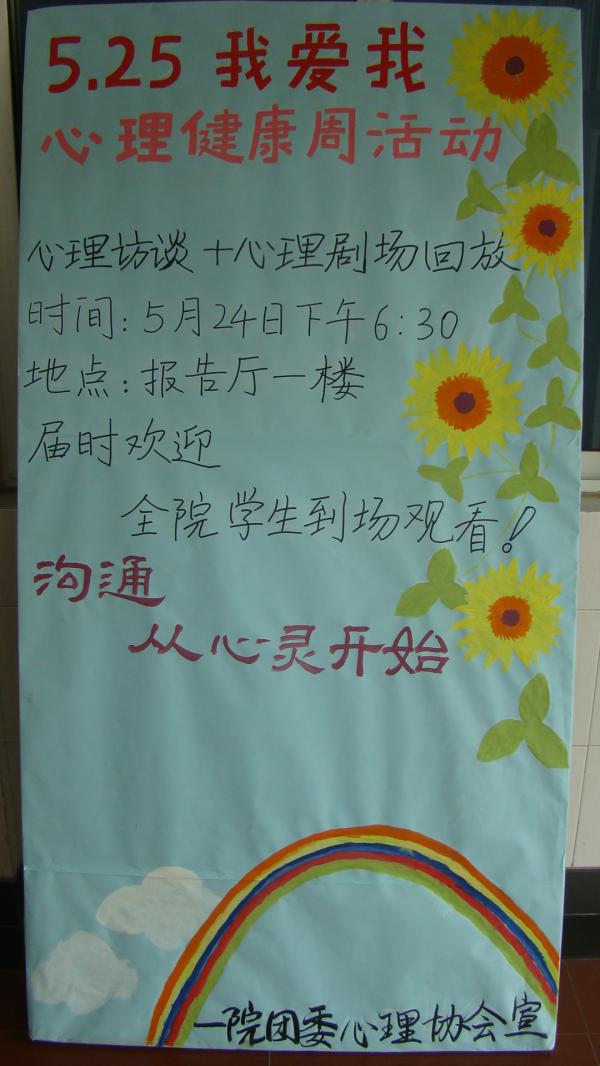 5.25 我爱我
心理健康周活动
心理访谈+心理剧场回放
时间:5月24日下午6:30
地点:报告厅一楼
届时欢迎
全院学生到场观看!
沟通
从心灵开始
一院团委心理协会宣